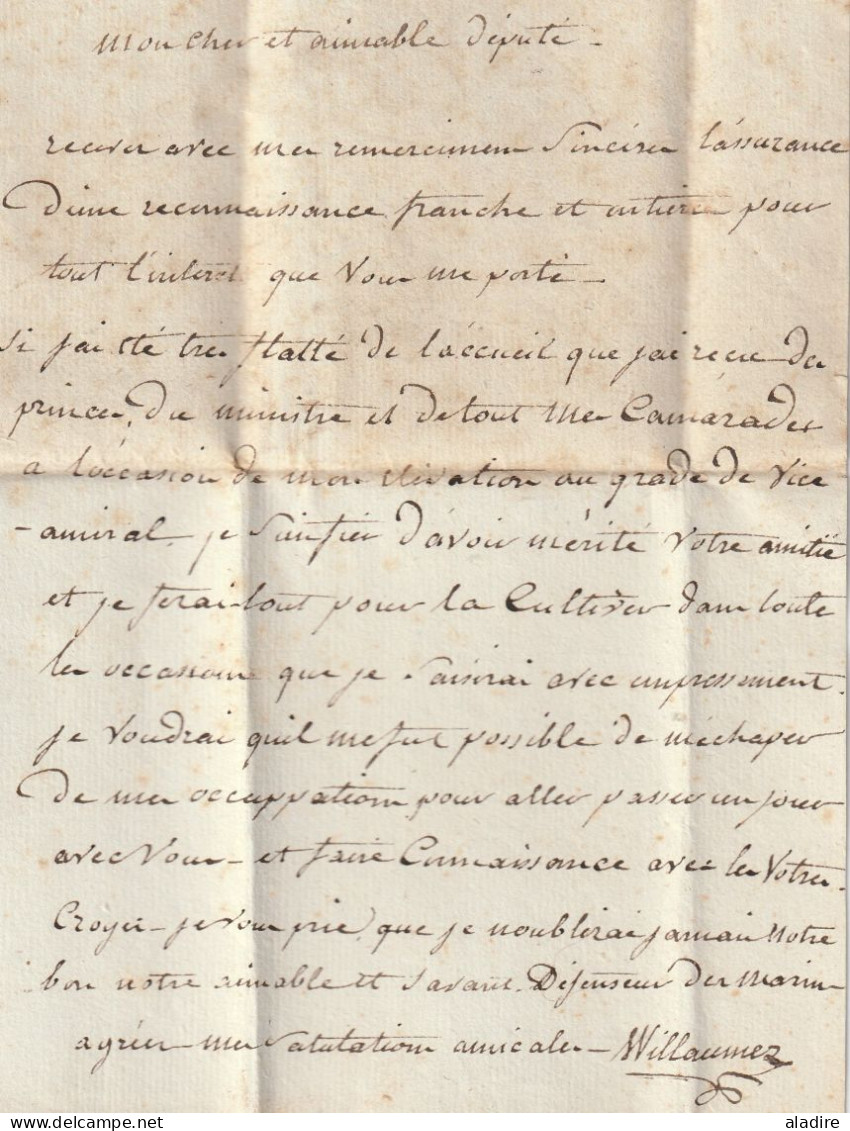 Mon cher et aimable député -
recever avec mes remercimens sinceres l'assurance
d'une reconnaissance franche et entiere pour
tout l'interet que vous me porté -
si j'ai été tres flatté de l'accueil que j'ai recu du
prince, du ministre et de tout mes Camárades
a l'occasion de mon élévation au grade de vice
-amiral. je suis fier d'avoir mérité votre amitié
et je ferai tout pour la Cultiver dans toute
les occasions que je saisirai avec empressement.
je voudrai quil me fut possible de m'echaper
de mes occuppations pour aller passer un jour
avec vous - et faire Connaissance avec les votres.
Croyés - je vous prie, que je noublirai jamais notre
bon notre aimable et savant Défenseur des marins
agréer mes salutations amicales - Willaumez
aladire
© delcampe.net